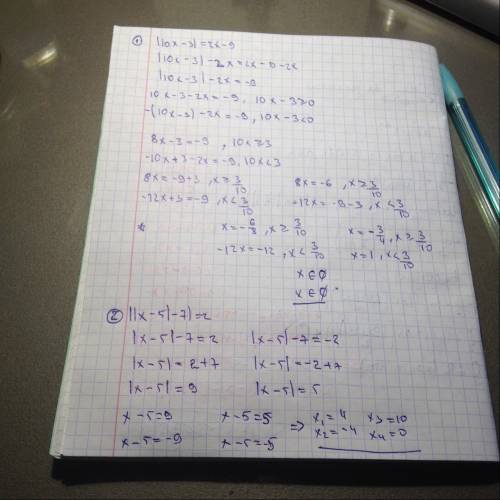 ① |10x-3|=2x-9
|10x-3|-2x=2x-9-2x
|10x-3|-2x=-9
10x-3-2x=-9, 10x-3≥0
-(10x-3)-2x=-9, 10x-3<0
8x-3=-9, 10x≥3
-10x+3-2x=-9, 10x<3
8x=-9+3, x≥3/10 8x=-6, x≥3/10
-12x+3=-9, x<3/10 -12x=-9-3, x<3/10
x=-6/8, x≥3/10 x=-3/4, x≥3/10
-12x=-12, x<3/10 x=1, x<3/10
x∈∅
x∈∅.
② ||x-5|-7|=2
|x-5|-7=2 |x-5|-7=-2
|x-5|=2+7 |x-5|=-2+7
|x-5|=9 |x-5|=5
x-5=9 x-5=5 ⇒ x₁=4 x₃=10
x-5=-9 x-5=-5 x₂=-4 x₄=0